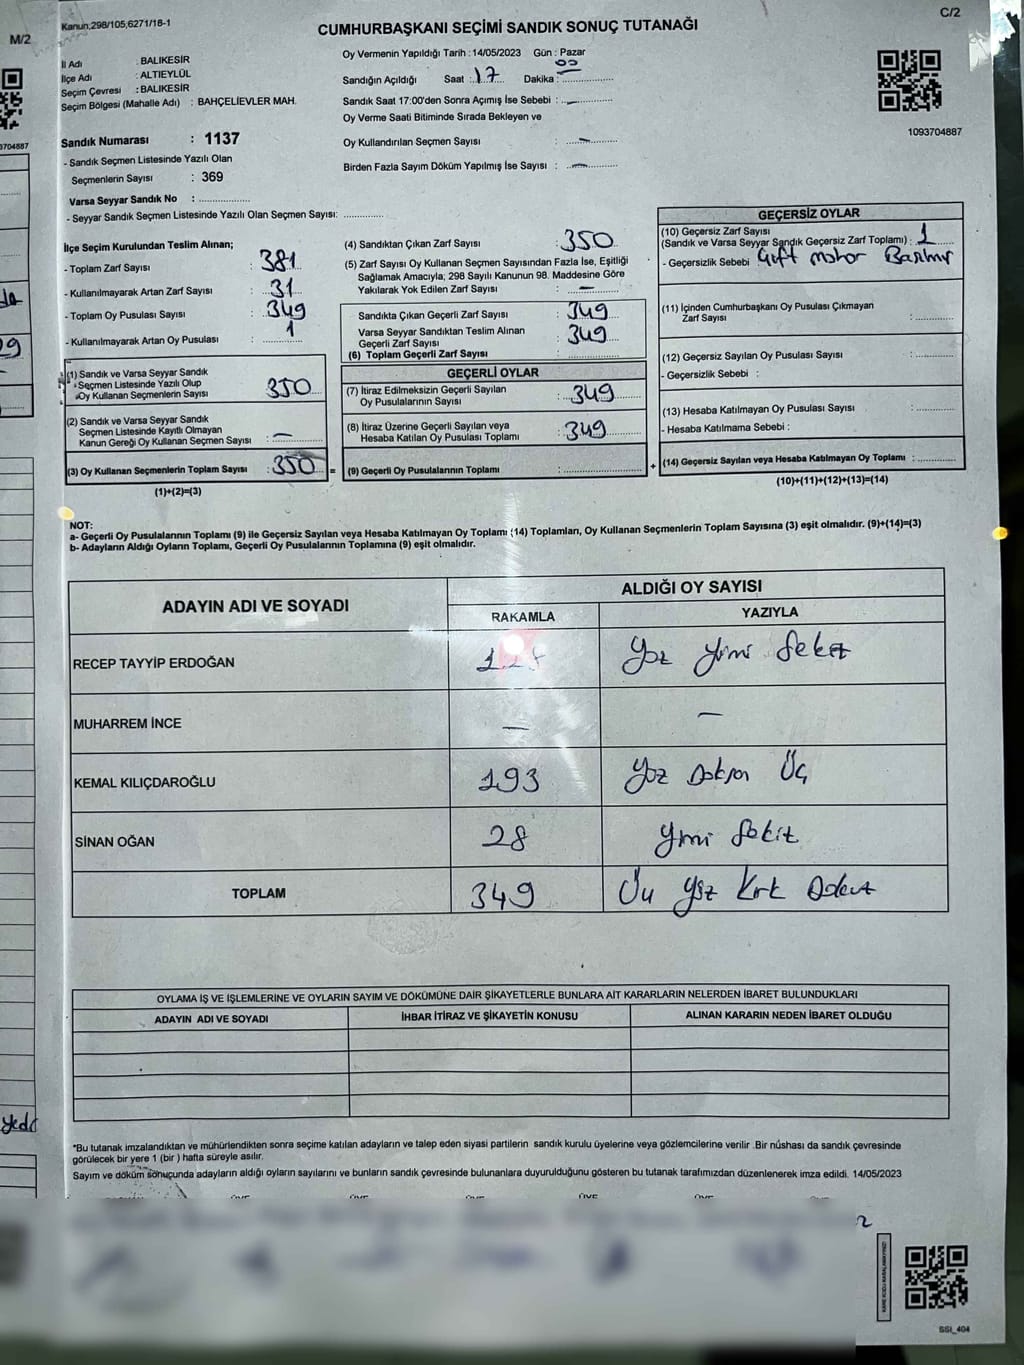 Kanun;298/105,6271/18-1
CUMHURBAŞKANI SEÇİMİ SANDIK SONUÇ TUTANAĞI
C/2
M/2
İl Adı : BALIKESİR
İlçe Adı : ALTIEYLÜL
Seçim Çevresi : BALIKESİR
Seçim Bölgesi (Mahalle Adı) : BAHÇELİEVLER MAH.
Oy Vermenin Yapıldığı Tarih : 14/05/2023 Gün : Pazar
Sandığın Açıldığı Saat : 17 Dakika : 00
Sandık Saat 17:00'den Sonra Açımış İse Sebebi : —
Oy Verme Saati Bitiminde Sırada Bekleyen ve
Oy Kullandırılan Seçmen Sayısı : —
Birden Fazla Sayım Döküm Yapılmış İse Sayısı : —
1093704887
3704887
Sandık Numarası : 1137
- Sandık Seçmen Listesinde Yazılı Olan
Seçmenlerin Sayısı : 369
Varsa Seyyar Sandık No :
- Seyyar Sandık Seçmen Listesinde Yazılı Olan Seçmen Sayısı:
İlçe Seçim Kurulundan Teslim Alınan;
- Toplam Zarf Sayısı : 381
- Kullanılmayarak Artan Zarf Sayısı : 31
- Toplam Oy Pusulası Sayısı : 349
- Kullanılmayarak Artan Oy Pusulası : 1
(1) Sandık ve Varsa Seyyar Sandık
Seçmen Listesinde Yazılı Olup
Oy Kullanan Seçmenlerin Sayısı 350
(2) Sandık ve Varsa Seyyar Sandık
Seçmen Listesinde Kayıtlı Olmayan
Kanun Gereği Oy Kullanan Seçmen Sayısı : —
(3) Oy Kullanan Seçmenlerin Toplam Sayısı : 350 =
(1)+(2)=(3)
(4) Sandıktan Çıkan Zarf Sayısı : 350
(5) Zarf Sayısı Oy Kullanan Seçmen Sayısından Fazla İse, Eşitliği
Sağlamak Amacıyla; 298 Sayılı Kanunun 98. Maddesine Göre
Yakılarak Yok Edilen Zarf Sayısı : —
Sandıkta Çıkan Geçerli Zarf Sayısı : 349
Varsa Seyyar Sandıktan Teslim Alınan
Geçerli Zarf Sayısı : 349
(6) Toplam Geçerli Zarf Sayısı :
GEÇERLİ OYLAR
(7) İtiraz Edilmeksizin Geçerli Sayılan
Oy Pusulalarının Sayısı : 349
(8) İtiraz Üzerine Geçerli Sayılan veya
Hesaba Katılan Oy Pusulası Toplamı : 349
(9) Geçerli Oy Pusulalarının Toplamı : +
GEÇERSİZ OYLAR
(10) Geçersiz Zarf Sayısı
(Sandık ve Varsa Seyyar Sandık Geçersiz Zarf Toplamı) : 1
- Geçersizlik Sebebi
(11) İçinden Cumhurbaşkanı Oy Pusulası Çıkmayan
Zarf Sayısı :
(12) Geçersiz Sayılan Oy Pusulası Sayısı :
- Geçersizlik Sebebi :
(13) Hesaba Katılmayan Oy Pusulası Sayısı :
- Hesaba Katılmama Sebebi :
(14) Geçersiz Sayılan veya Hesaba Katılmayan Oy Toplamı :
(10)+(11)+(12)+(13)=(14)
NOT:
a- Geçerli Oy Pusulalarının Toplamı (9) ile Geçersiz Sayılan veya Hesaba Katılmayan Oy Toplamı (14) Toplamları, Oy Kullanan Seçmenlerin Toplam Sayısına (3) eşit olmalıdır. (9)+(14)=(3)
b- Adayların Aldığı Oyların Toplamı, Geçerli Oy Pusulalarının Toplamına (9) eşit olmalıdır.
ADAYIN ADI VE SOYADI
ALDIĞI OY SAYISI
RAKAMLA YAZIYLA
RECEP TAYYİP ERDOĞAN Yüz Yirmi Sekiz
MUHARREM İNCE — —
KEMAL KILIÇDAROĞLU 193 Yüz Doksan Üç
SİNAN OĞAN 28 Yirmi Sekiz
TOPLAM 349 Üç Yüz Kırk Dokuz
OYLAMA İŞ VE İŞLEMLERİNE VE OYLARIN SAYIM VE DÖKÜMÜNE DAİR ŞİKAYETLERLE BUNLARA AİT KARARLARIN NELERDEN İBARET BULUNDUKLARI
ADAYIN ADI VE SOYADI İHBAR İTİRAZ VE ŞİKAYETİN KONUSU ALINAN KARARIN NEDEN İBARET OLDUĞU
*Bu tutanak imzalandıktan ve mühürlendikten sonra seçime katılan adayların ve talep eden siyasi partilerin sandık kurulu üyelerine veya gözlemcilerine verilir .Bir nüshası da sandık çevresinde
görülecek bir yere 1 (bir ) hafta süreyle asılır.
Sayım ve döküm sonuçunda adayların aldığı oyların sayılarını ve bunların sandık çevresinde bulunanlara duyurulduğunu gösteren bu tutanak tarafımızdan düzenlenerek imza edildi. 14/05/2023
SSI_404